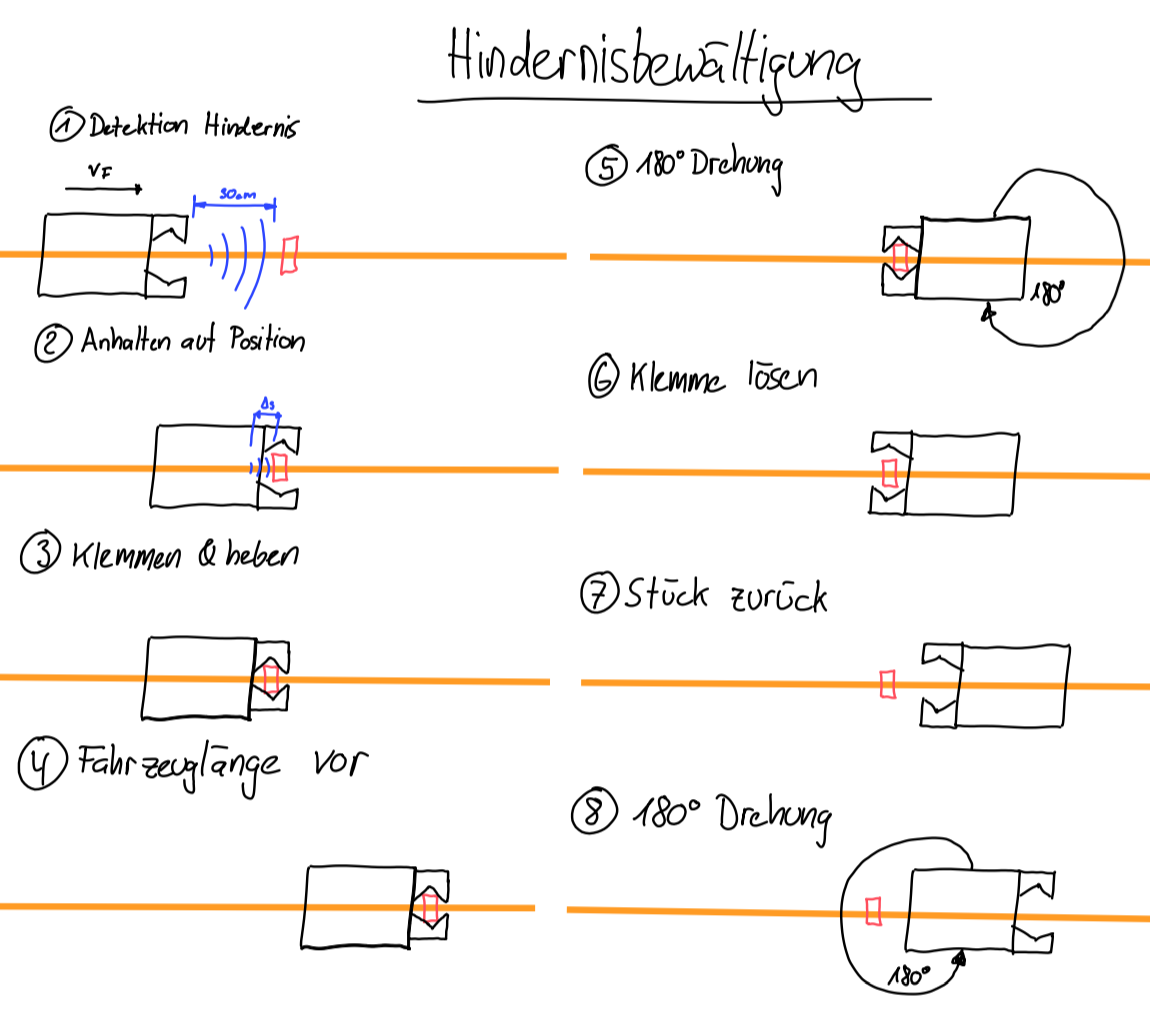 Hindernisbewältigung
① Detektion Hindernis
VF
30cm
② Anhalten auf Position
Δs
③ Klemmen & heben
④ Fahrzeuglänge vor
⑤ 180° Drehung
180°
⑥ Klemme lösen
⑦ Stück zurück
⑧ 180° Drehung
180°